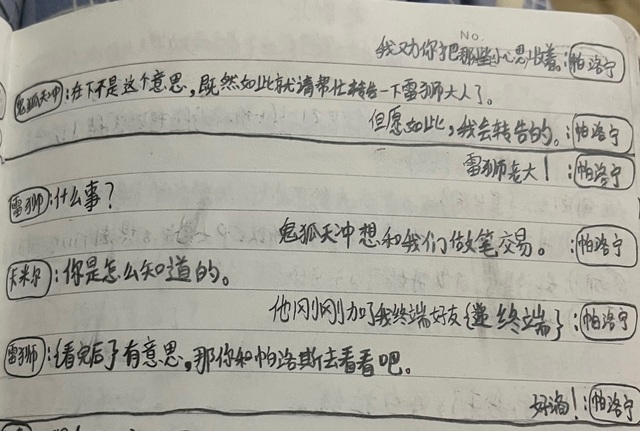 No.
我劝你把那些小心思收着。:帕洛宁
鬼狐天冲:在下不是这个意思,既然如此就请帮忙转告一下雷狮大人了。
但愿如此,我会转告的。:帕洛宁
雷狮老大!:帕洛宁
雷狮:什么事?
鬼狐天冲想和我们做笔交易。:帕洛宁
卡米尔:你是怎么知道的。
他刚刚加了我终端好友{递终端}:帕洛宁
雷狮:{看完后}有意思,那你和帕洛斯去看看吧。
好滴!:帕洛宁